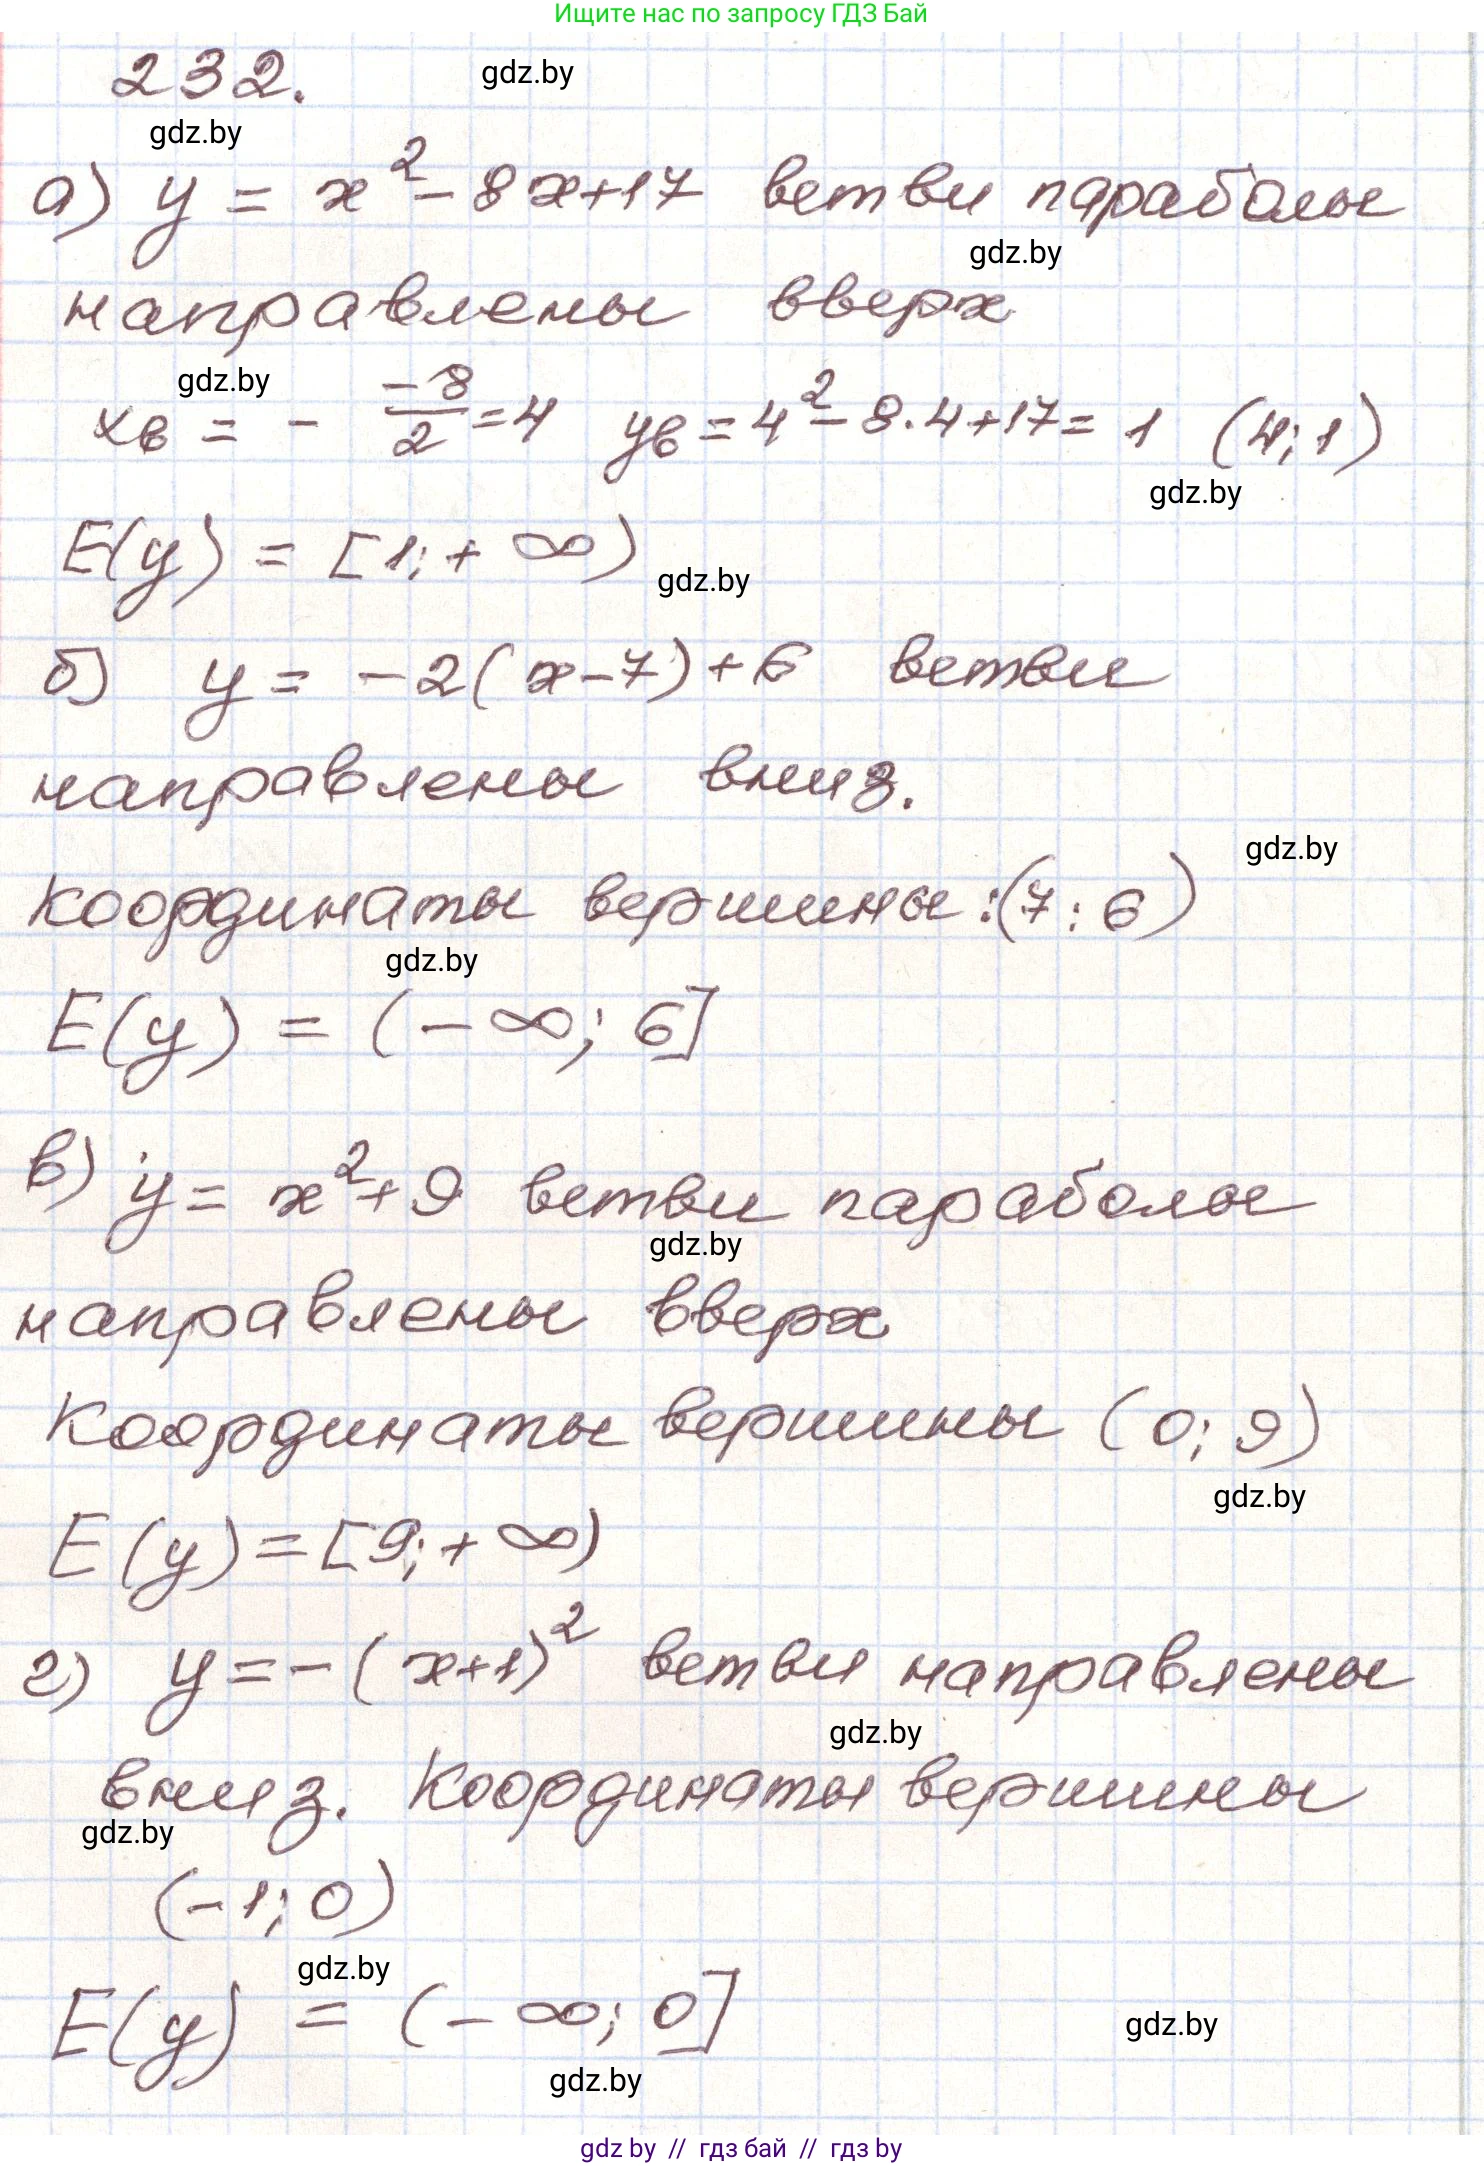 Ищите нас по запросу ГДЗ Бай
232.
gdz.by
gdz.by
а) y = x² - 8x+17 ветви параболы
gdz.by
направлены вверх
gdz.by
xв = - -8/2 = 4 yв = 4² - 8·4+17 = 1 (4; 1)
gdz.by
E(y) = [1; + ∞)
gdz.by
б) y = -2(x-7)+6 ветви
направлены вниз.
gdz.by
координаты вершины: (7; 6)
gdz.by
E(y) = (-∞; 6]
в) y = x²+9 ветви параболы
gdz.by
направлены вверх
Координаты вершины (0; 9)
gdz.by
E(y) = [9; + ∞)
г) y = -(x+1)² ветви направлены
gdz.by
вниз. Координаты вершины
gdz.by
(-1; 0)
gdz.by
E(y) = (-∞; 0]
gdz.by
gdz.by
gdz by // гдз бай // гдз by